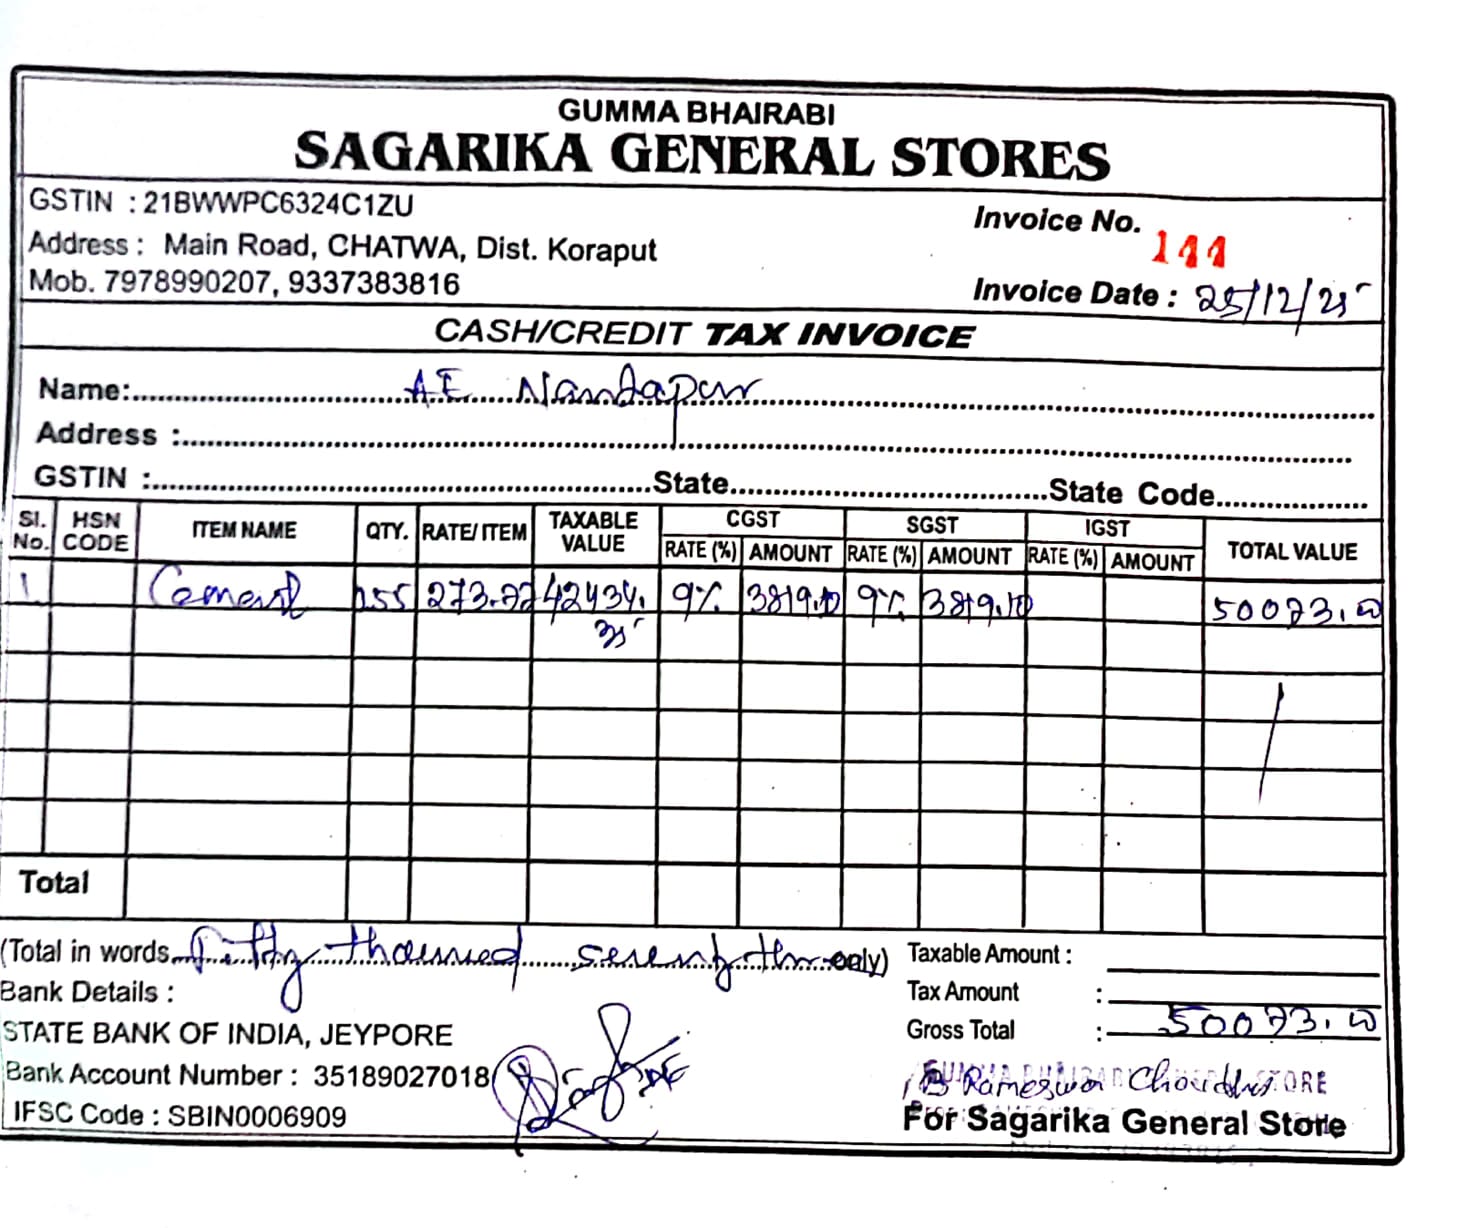 GUMMA BHAIRABI
SAGARIKA GENERAL STORES
GSTIN : 21BWWPC6324C1ZU
Address : Main Road, CHATWA, Dist. Koraput
Mob. 7978990207, 9337383816
Invoice No. 144
Invoice Date : 25/12/25
CASH/CREDIT TAX INVOICE
Name: AE Nandapur
Address :
GSTIN : State State Code
Sl. No. HSN CODE ITEM NAME QTY. RATE/ ITEM TAXABLE VALUE CGST SGST IGST TOTAL VALUE
RATE (%) AMOUNT RATE (%) AMOUNT RATE (%) AMOUNT
1 Cement 155 273.77 42434.35 9% 3819.10 9% 3819.10 50073.00
Total
(Total in words Fifty thousand seventy three only)
Taxable Amount :
Tax Amount :
Gross Total : 50073.00
Bank Details :
STATE BANK OF INDIA, JEYPORE
Bank Account Number : 35189027018
IFSC Code : SBIN0006909
Rameswar Choudhury
STORE
For Sagarika General Store